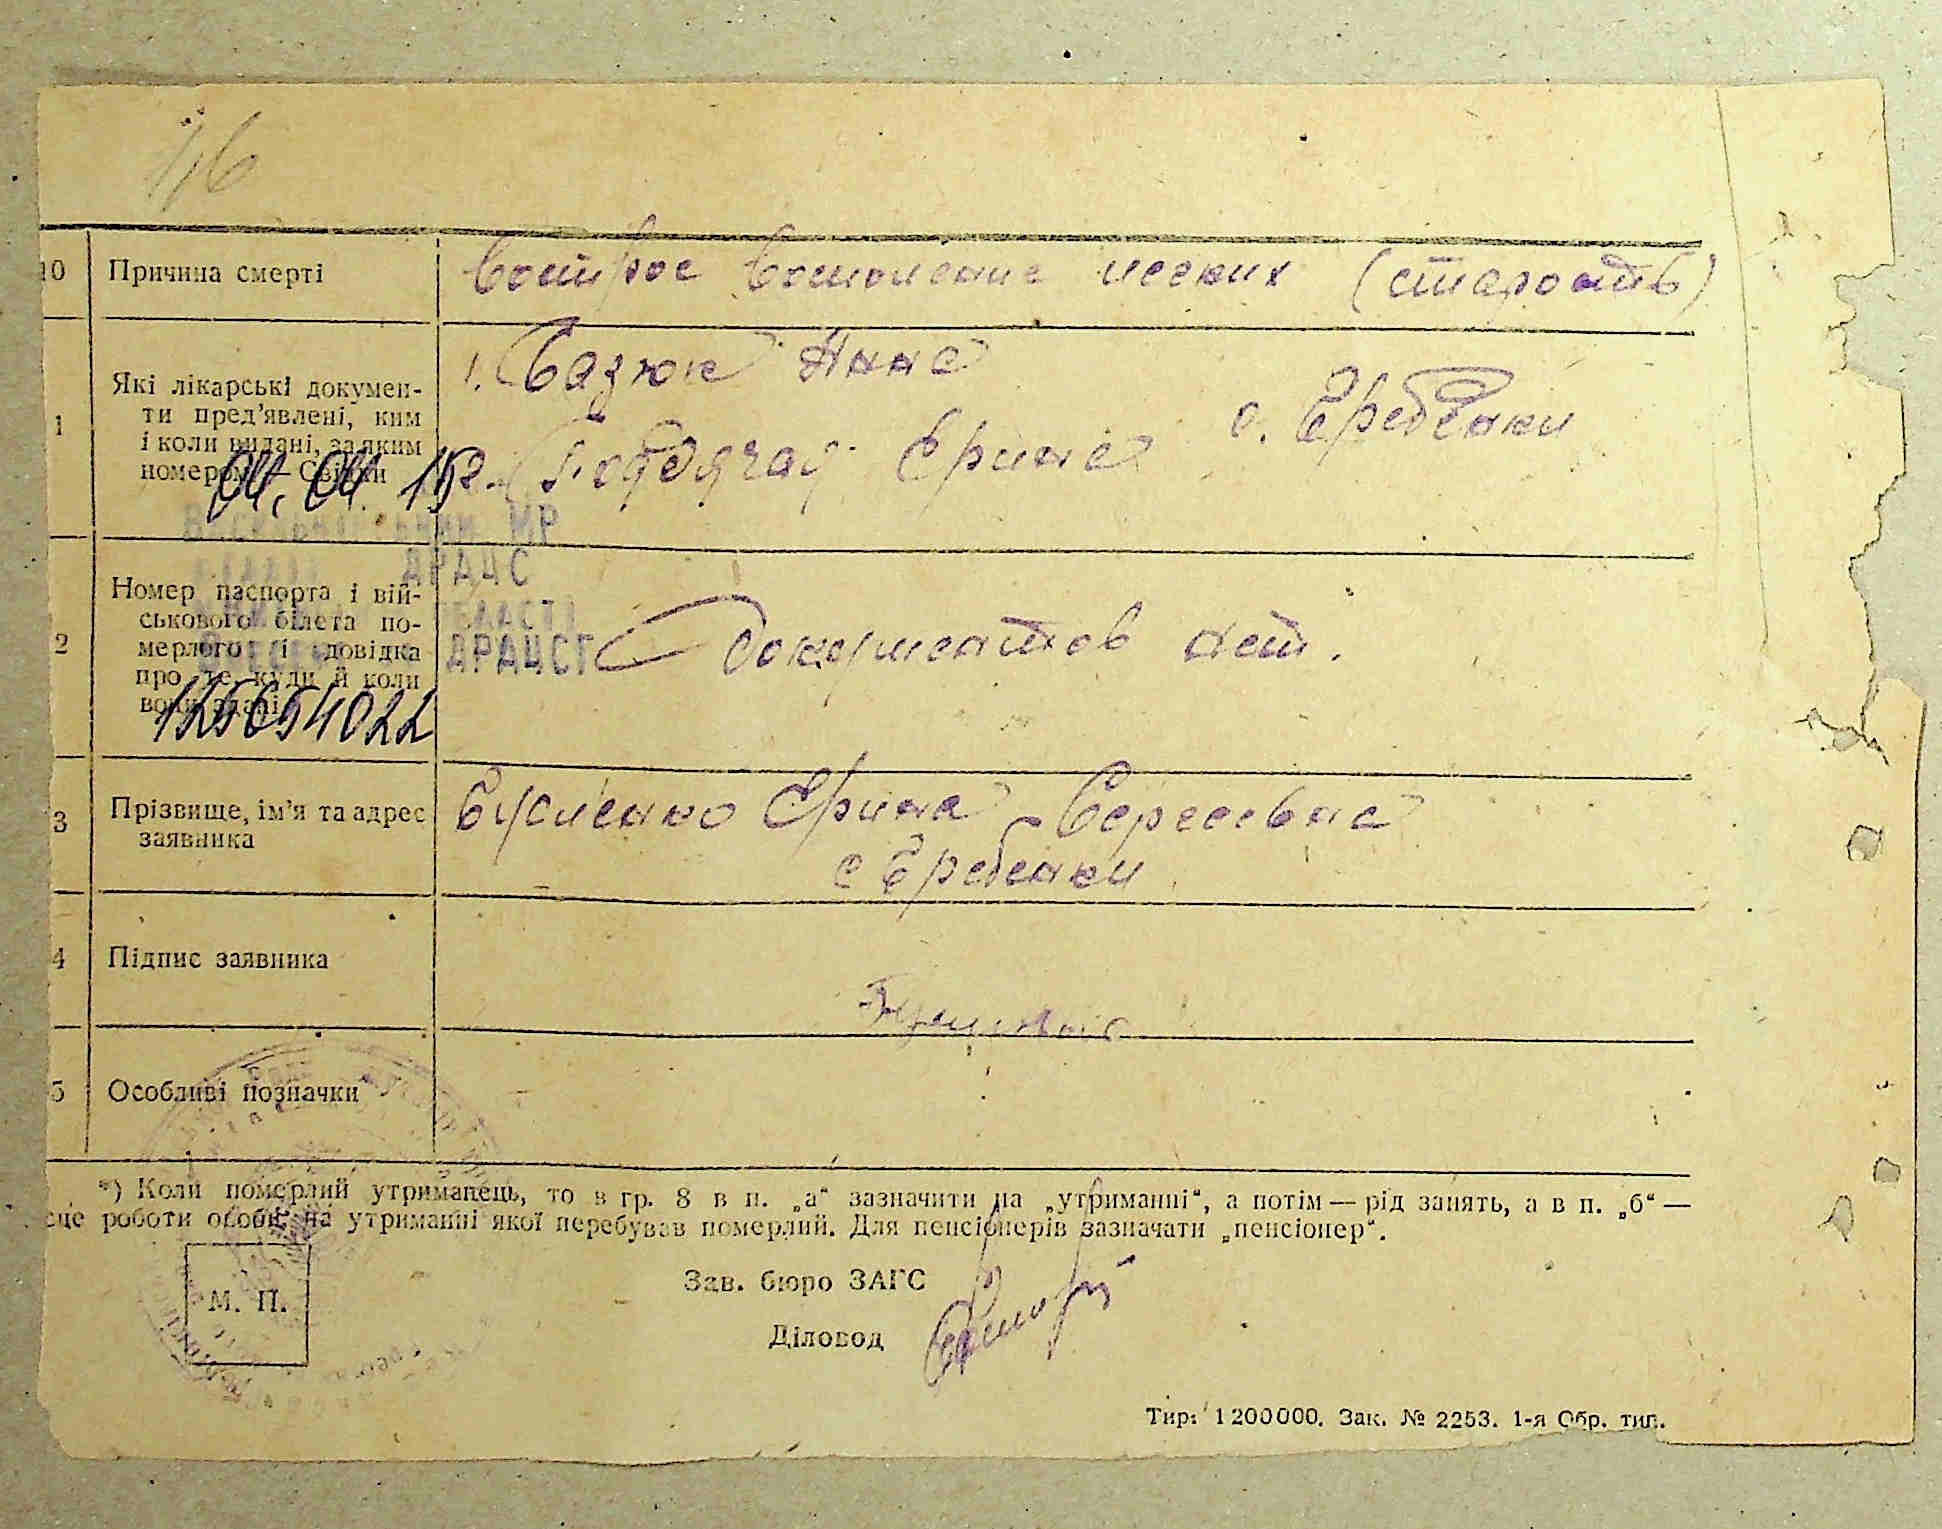 46
10 Причина смерті
вострое восполение легких (старость)
1 Які лікарські докумен-
ти пред’явлені, ким
і коли видані, за яким
номером — Свідки
1. Базюк Анна
2. Ерина с. Гребенки
04. 04 15
МР
ДРАЦС
ДРАЦСГ
2 Номер паспорта і вій-
ськового білета по-
мерлого і довідка
про те, куди й коли
вони здані
документов нет.
125654022
3 Прізвище, ім’я та адрес
заявника
Бусленко Ерина Сергеевна
с Гребенки
4 Підпис заявника
5 Особливі позначки
*) Коли померлий утриманець, то в гр. 8 в п. „а“ зазначити на „утриманні“, а потім — рід занять, а в п. „б“ —
сце роботи особи, на утриманні якої перебував померлий. Для пенсіонерів зазначати „пенсіонер“.
М. П.
Зав. бюро ЗАГС
Діловод
Тир: 1200000. Зак. № 2253. 1-я Обр. тип.